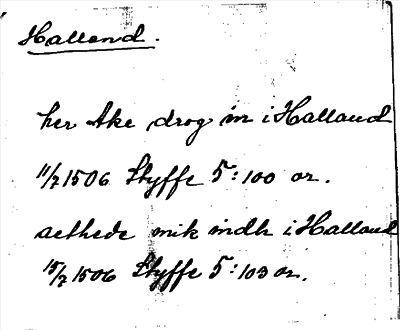 Halland.
her Ake drog in i Halland
11/2 1506 Styffe 5:100 or.
aethede mik indh i Halland
15/2 1506 Styffe 5:103 or.